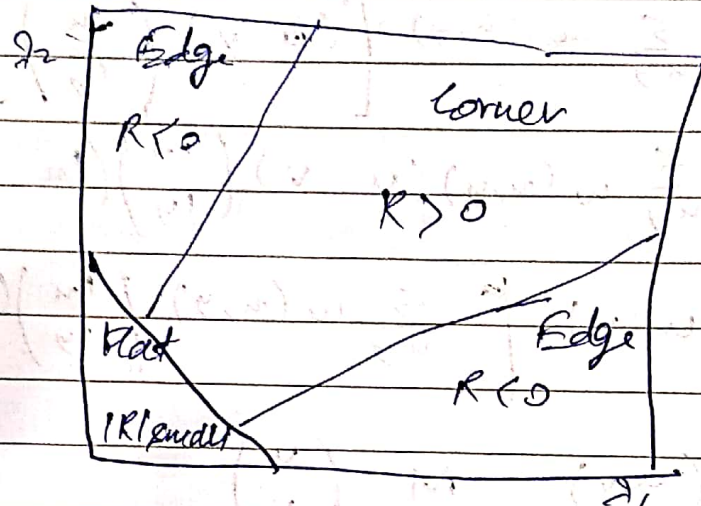 λ₂
Edge
R<0
Corner
R>0
Flat
|R| small
Edge
R<0
λ₁